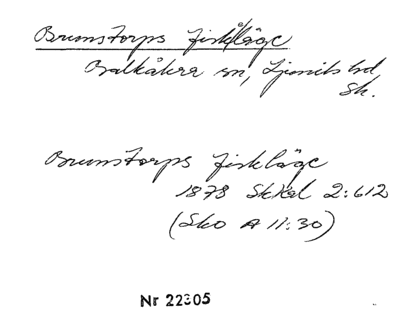 Brunstorps fiskläge
Balkåkra sn, Ljunits hd
Sk.
Brunstorps fiskläge
1878 SkHal 2:612
(Sko A 11:30)
Nr 22305